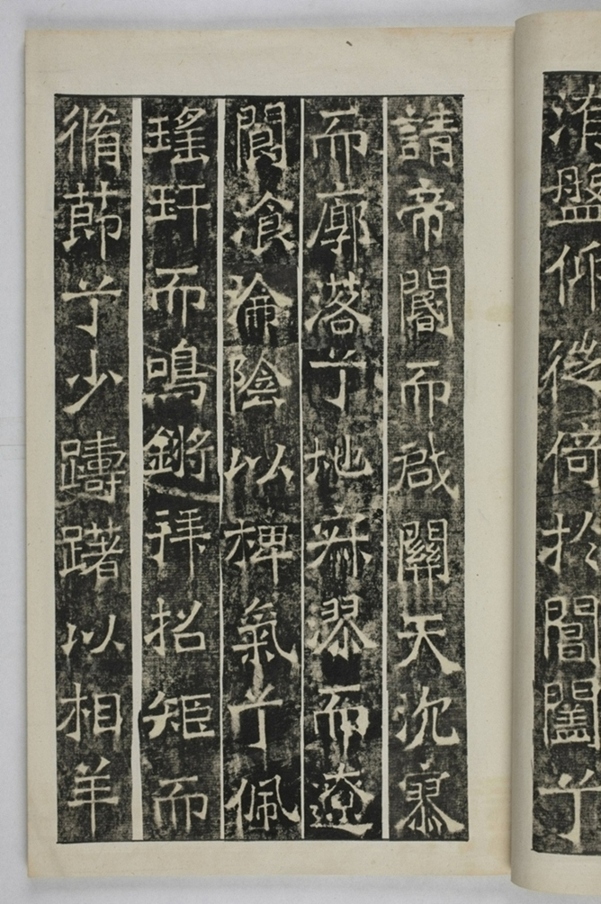 洧盤仰徙倚於閶闔兮
請帝閽而啟關天沉寥
而廓落兮地寂漻而遼
閬飡淪陰以裨氣兮佩
瑤玕而鳴鏘拜招矩而
脩節兮少躊躇以相羊